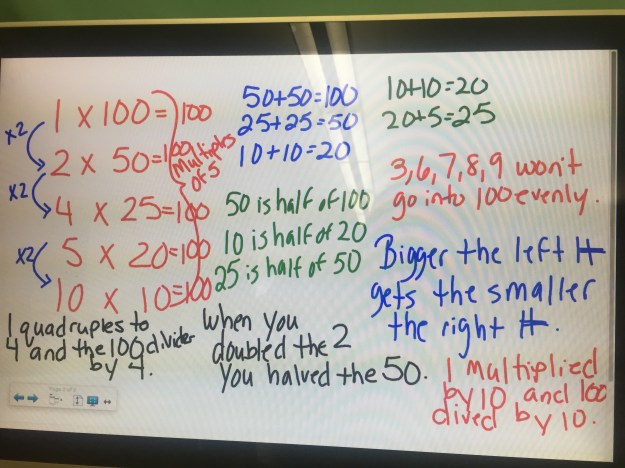 x2
x2
x2
1 x 100=100
2 x 50=100
4 x 25=100
5 x 20=100
10 x 10=100
Multiples
of 5
50+50=100
25+25=50
10+10=20
10+10=20
20+5=25
50 is half of 100
10 is half of 20
25 is half of 50
3,6,7,8,9 won't
go into 100 evenly.
Bigger the left #
gets the smaller
the right #.
1 quadruples to
4 and the 100 divider
by 4.
When you
doubled the 2
you halved the 50.
1 multiplied
by 10 and 100
dived by 10.